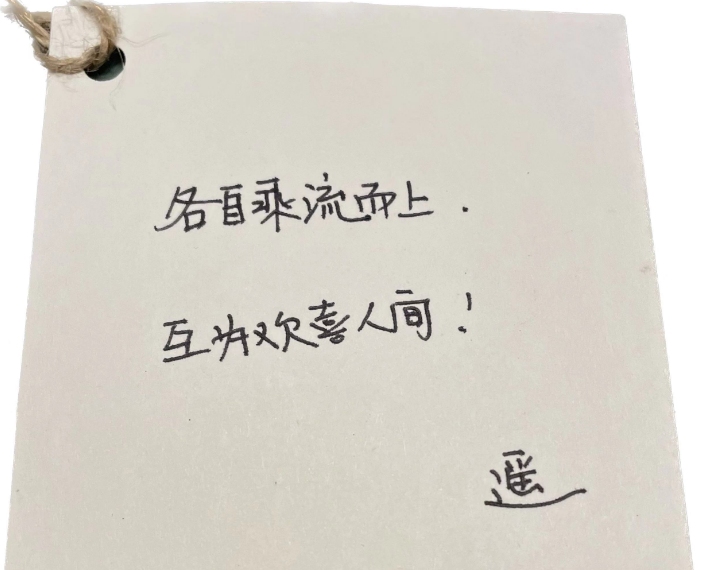 各自乘流而上.
互为欢喜人间!
遥